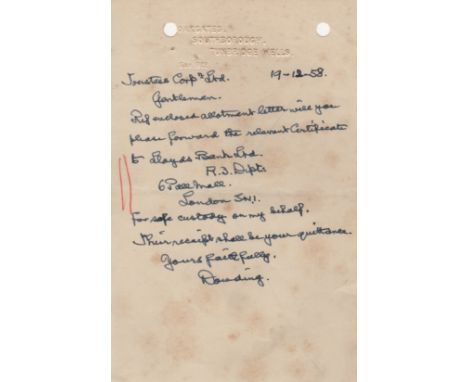 DARGATES,
SOUTHBOROUGH,
TUNBRIDGE WELLS.
Trustees Corpn Ltd. 19-12-58.
Gentlemen.
Ref enclosed allotment letter will you
please forward the relevant Certificate
to Lloyds Bank Ltd.
R.S. Dept.
6 Pall Mall.
London S.W.1.
For safe custody on my behalf.
Their receipt shall be your quittance.
Yours faithfully.
Dowding.